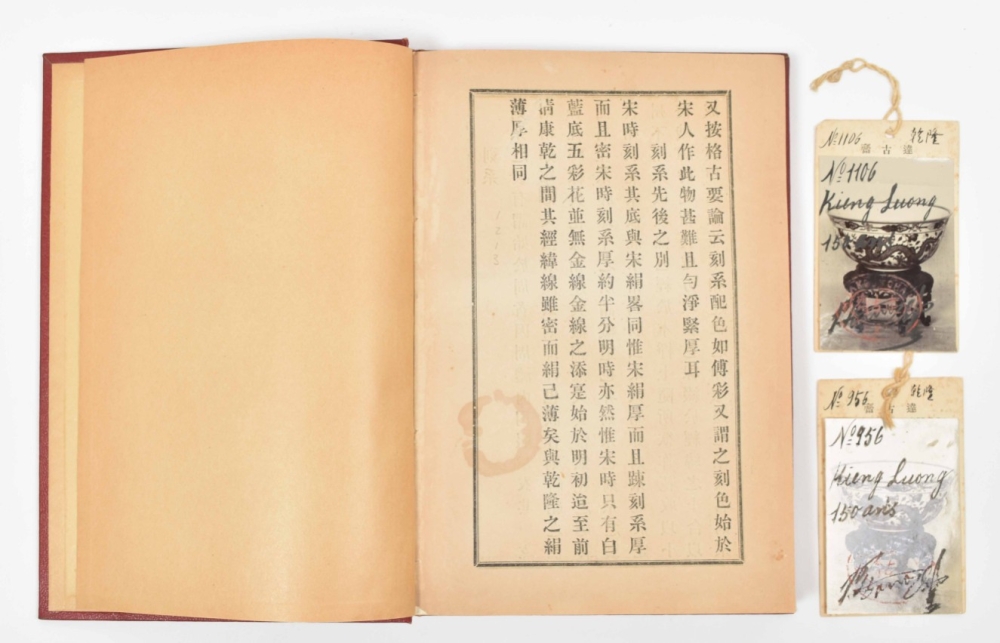 又按格古要論云刻系配色如傅彩又謂之刻色始於
宋人作此物甚難且勻淨緊厚耳
刻系先後之別
宋時刻系其底與宋絹畧同惟宋絹厚而且踈刻系厚
而且密宋時刻系厚約半分明時亦然惟宋時只有白
藍底五彩花並無金線金線之添寔始於明初迨至前
清康乾之間其經緯線雖密而絹已薄矣與乾隆之絹
薄厚相同
№1106 乾隆
齋古達
№1106
Kieng Luong
150 ans
№ 956 乾隆
齋古達
№956
Kieng Luong
150 ans